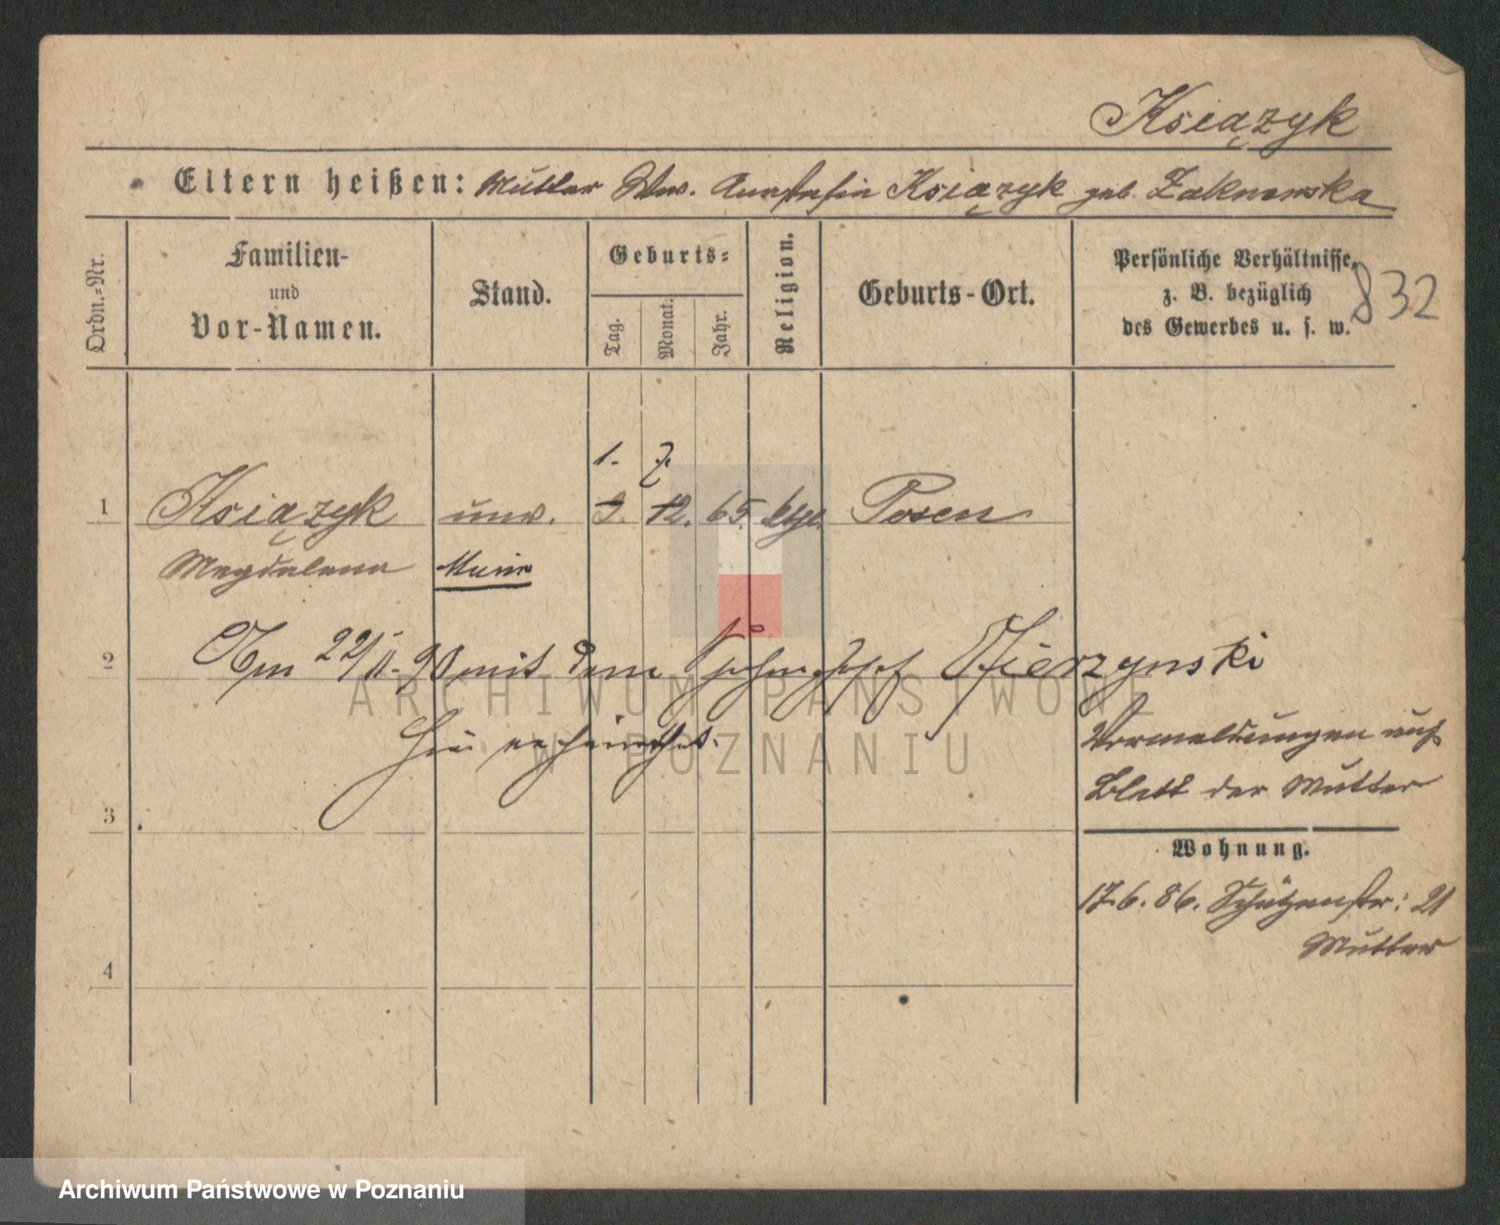 Książyk
Eltern heißen: Mutter Ww. Anastasia Książyk geb. Zaknowska
Ordn.-Nr.
Familien-
und
Vor-Namen.
Stand.
Geburts-
Tag.
Monat.
Jahr.
Religion.
Geburts-Ort.
Persönliche Verhältnisse,
z. B. bezüglich
des Gewerbes u. s. w.
832
1. 7.
1 Książyk unv. 3. 12. 65. ktgl. Posen
Magdalena Marie
2 Am 22/11. 90 mit dem Josef Wierzynski
hier verheirathet.
ARCHIWUM PAŃSTWOWE
W POZNANIU
Vormeldungen auf
Blatt der Mutter
3
Wohnung.
17.6.86. Schützenstr: 21
Mutter
4
Archiwum Państwowe w Poznaniu